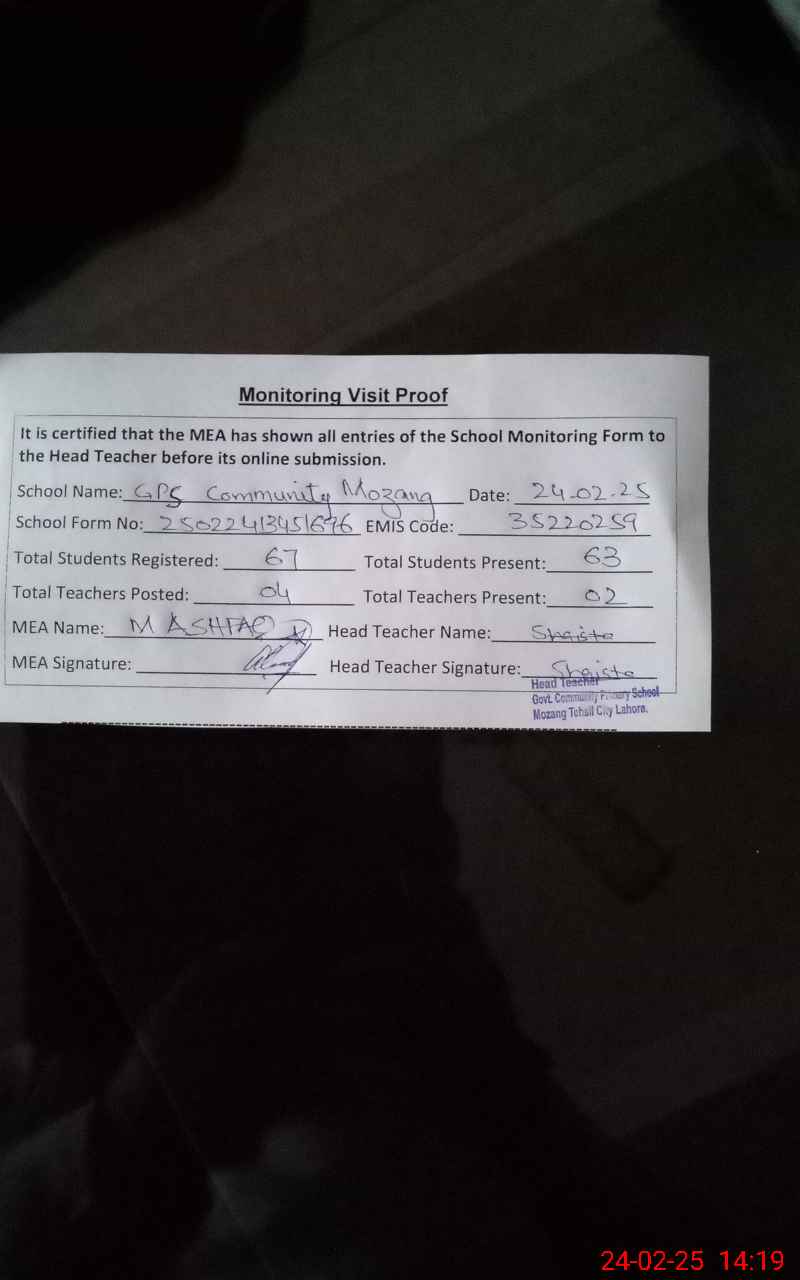 Monitoring Visit Proof
It is certified that the MEA has shown all entries of the School Monitoring Form to
the Head Teacher before its online submission.
School Name: GPS Community Mozang Date: 24-02-25
School Form No: 25022413451676 EMIS Code: 35220259
Total Students Registered: 67 Total Students Present: 63
Total Teachers Posted: 04 Total Teachers Present: 02
MEA Name: M ASHFAQ Head Teacher Name: Shaista
MEA Signature: Head Teacher Signature: Shaista
Head Teacher
Govt. Community Primary School
Mozang Tehsil City Lahore.
24-02-25 14:19